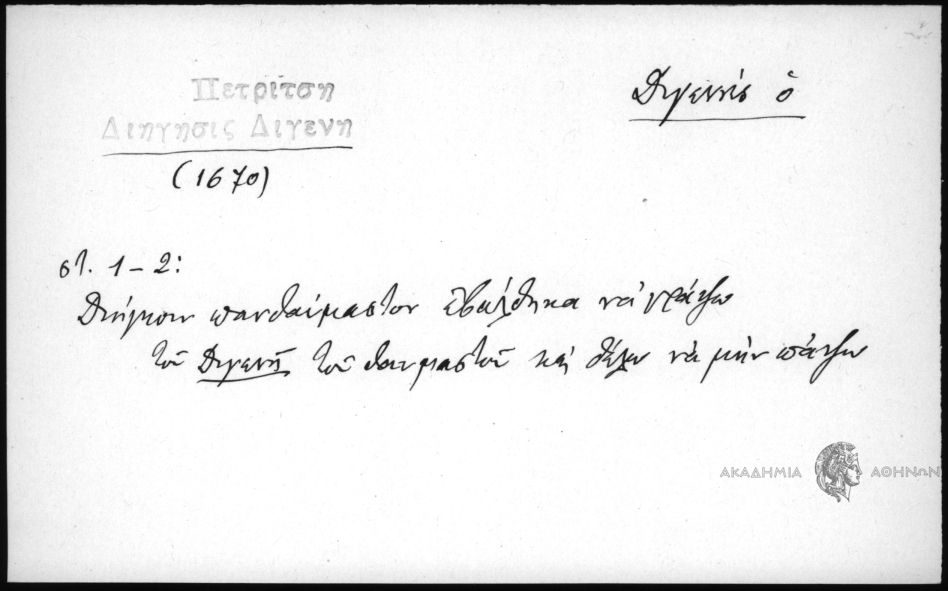 Πετρίτση
Διήγησις Διγενή
(1670)
Διγενής ὁ
στ. 1-2:
Διήγησιν πανθαύμαστον ἐβάλθηκα νὰ γράψω
τοῦ Διγενῆ τοῦ θαυμαστοῦ καὶ θέλω νὰ μὴν πάψω
ΑΚΑΔΗΜΙΑ ΑΘΗΝΩΝ